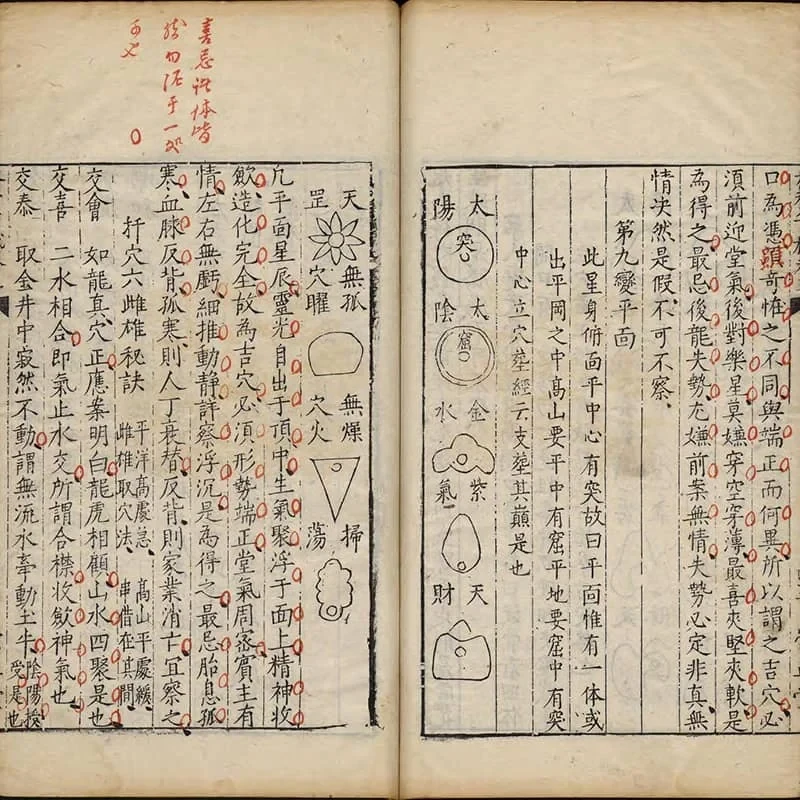 口為憑須奇恠之不同與端正而何異所以謂之吉穴必
湏前迎堂氣後對樂星莫嫌穿空穿薄最喜夾堅夾軟是
為得之最忌後龍失勢左嫌前案無情失勢必定非真無
情决然是假不可不察
第九變平面
此星身俯面平中心有突故曰平面惟有一体或
出平岡之中高山要平中有窟平地要窟中有突
中心立穴塟經云支塟其巔是也
太陽
突
太陰
窟
金水
紫氣
天財
喜忌
体皆
勿泥于一处
天罡
無孤穴曜
無燥穴火
掃蕩
凢平面星辰靈光自出于頂中生氣聚浮于面上精神收
歛造化完全故為吉穴必湏形勢端正堂氣周宻賓主有
情左右無虧細推動静詳察浮沉是為得之最忌胎息孤
寒血脉反背孤寒則人丁衰替反背則家業消亡冝察之
扞穴六雌雄秘訣
平洋高處急高山平處緩
雌雄取穴法串借在其間
交會　如龍真穴正應案明白龍虎相顧山水四聚是也
交喜　二水相合即氣止水交所謂合襟收歛神氣也
交泰　取金井中寂然不動謂無流水牽動土牛陰陽授
受是也